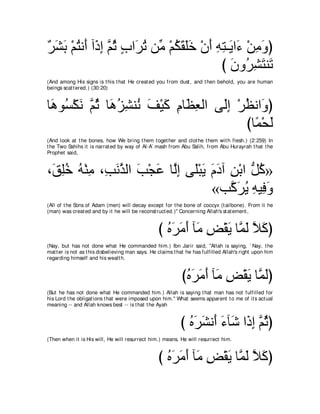 (وَمِنْ ءَايَـتِهِ أَنْ خَلَقَكُمْ مِّن تُرَابٍ ثُمَّ إِذَآ أَنتُمْ بَشَرٌ
تَنتَشِرُونَ )
(And among His signs is this that He created you from dust, and then behold, you are human
beings scattered.) (30:20)
(وَانظُرْ إِلَى العِظَامِ كَيْفَ نُنشِزُهَا ثُمَّ نَكْسُوهَا
لَحْمًا)
(And look at the bones, how We bring them together and clothe them with flesh.) (2:259) In
the Two Sahihs it is narrated by way of Al-A`mash from Abu Salih, from Abu Hurayrah that the
Prophet said,
«كُلُّ ابْنِ آدَمَ يَبْلَى إِلَّا عَجْبَ الذَّنَبِ، مِنْهُ خُلِقَ،
وَفِيهِ يُرَكَّب»
(All of the Sons of Adam (men) will decay except for the bone of coccyx (tailbone). From it he
(man) was created and by it he will be reconstructed.)" Concerning Allah's statement,
(كَلاَّ لَمَّا يَقْضِ مَآ أَمَرَهُ )
(Nay, but has not done what He commanded him.) Ibn Jarir said, "Allah is saying, `Nay, the
matter is not as this disbelieving man says. He claims that he has fulfilled Allah's right upon him
regarding himself and his wealth.
(لَمَّا يَقْضِ مَآ أَمَرَهُ)
(But he has not done what He commanded him.) Allah is saying that man has not fulfilled for
his Lord the obligations that were imposed upon him." What seems apparent to me of its actual
meaning -- and Allah knows best -- is that the Ayah
(ثُمَّ إِذَا شَآءَ أَنشَرَهُ )
(Then when it is His will, He will resurrect him.) means, He will resurrect him.
(كَلاَّ لَمَّا يَقْضِ مَآ أَمَرَهُ )